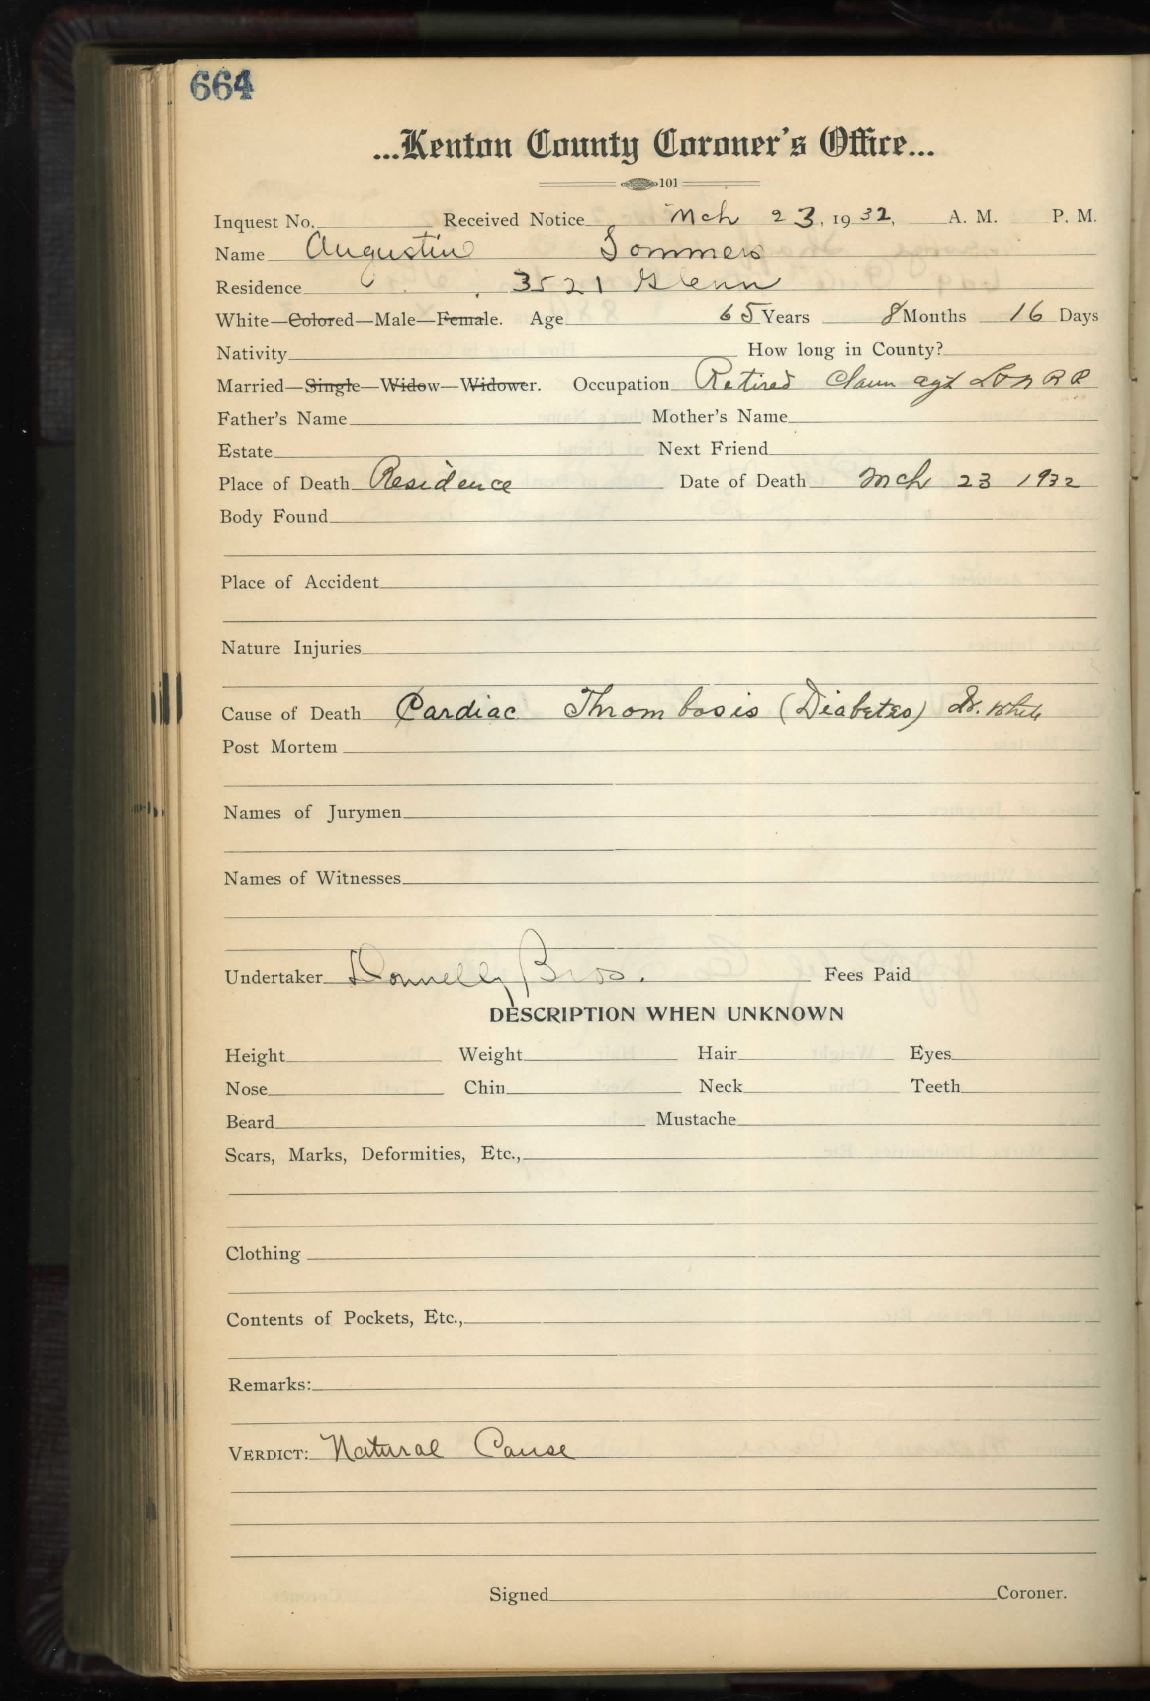 664
...Kenton County Coroner's Office...
101
Inquest No. Received Notice Mch 23, 1932, A. M. P. M.
Name Augustine Sommers
Residence 3521 Glenn
White—Colored—Male—Female. Age 65 Years 8 Months 16 Days
Nativity How long in County?
Married—Single—Widow—Widower. Occupation Retired Claim agt L&N RR
Father's Name Mother's Name
Estate Next Friend
Place of Death Residence Date of Death Mch 23 1932
Body Found
Place of Accident
Nature Injuries
Cause of Death Cardiac Thrombosis (Diabetes) Dr. White
Post Mortem
Names of Jurymen
Names of Witnesses
Undertaker Donnelly Bros. Fees Paid
DESCRIPTION WHEN UNKNOWN
Height Weight Hair Eyes
Nose Chin Neck Teeth
Beard Mustache
Scars, Marks, Deformities, Etc.,
Clothing
Contents of Pockets, Etc.,
Remarks:
VERDICT: Natural Cause
Signed Coroner.